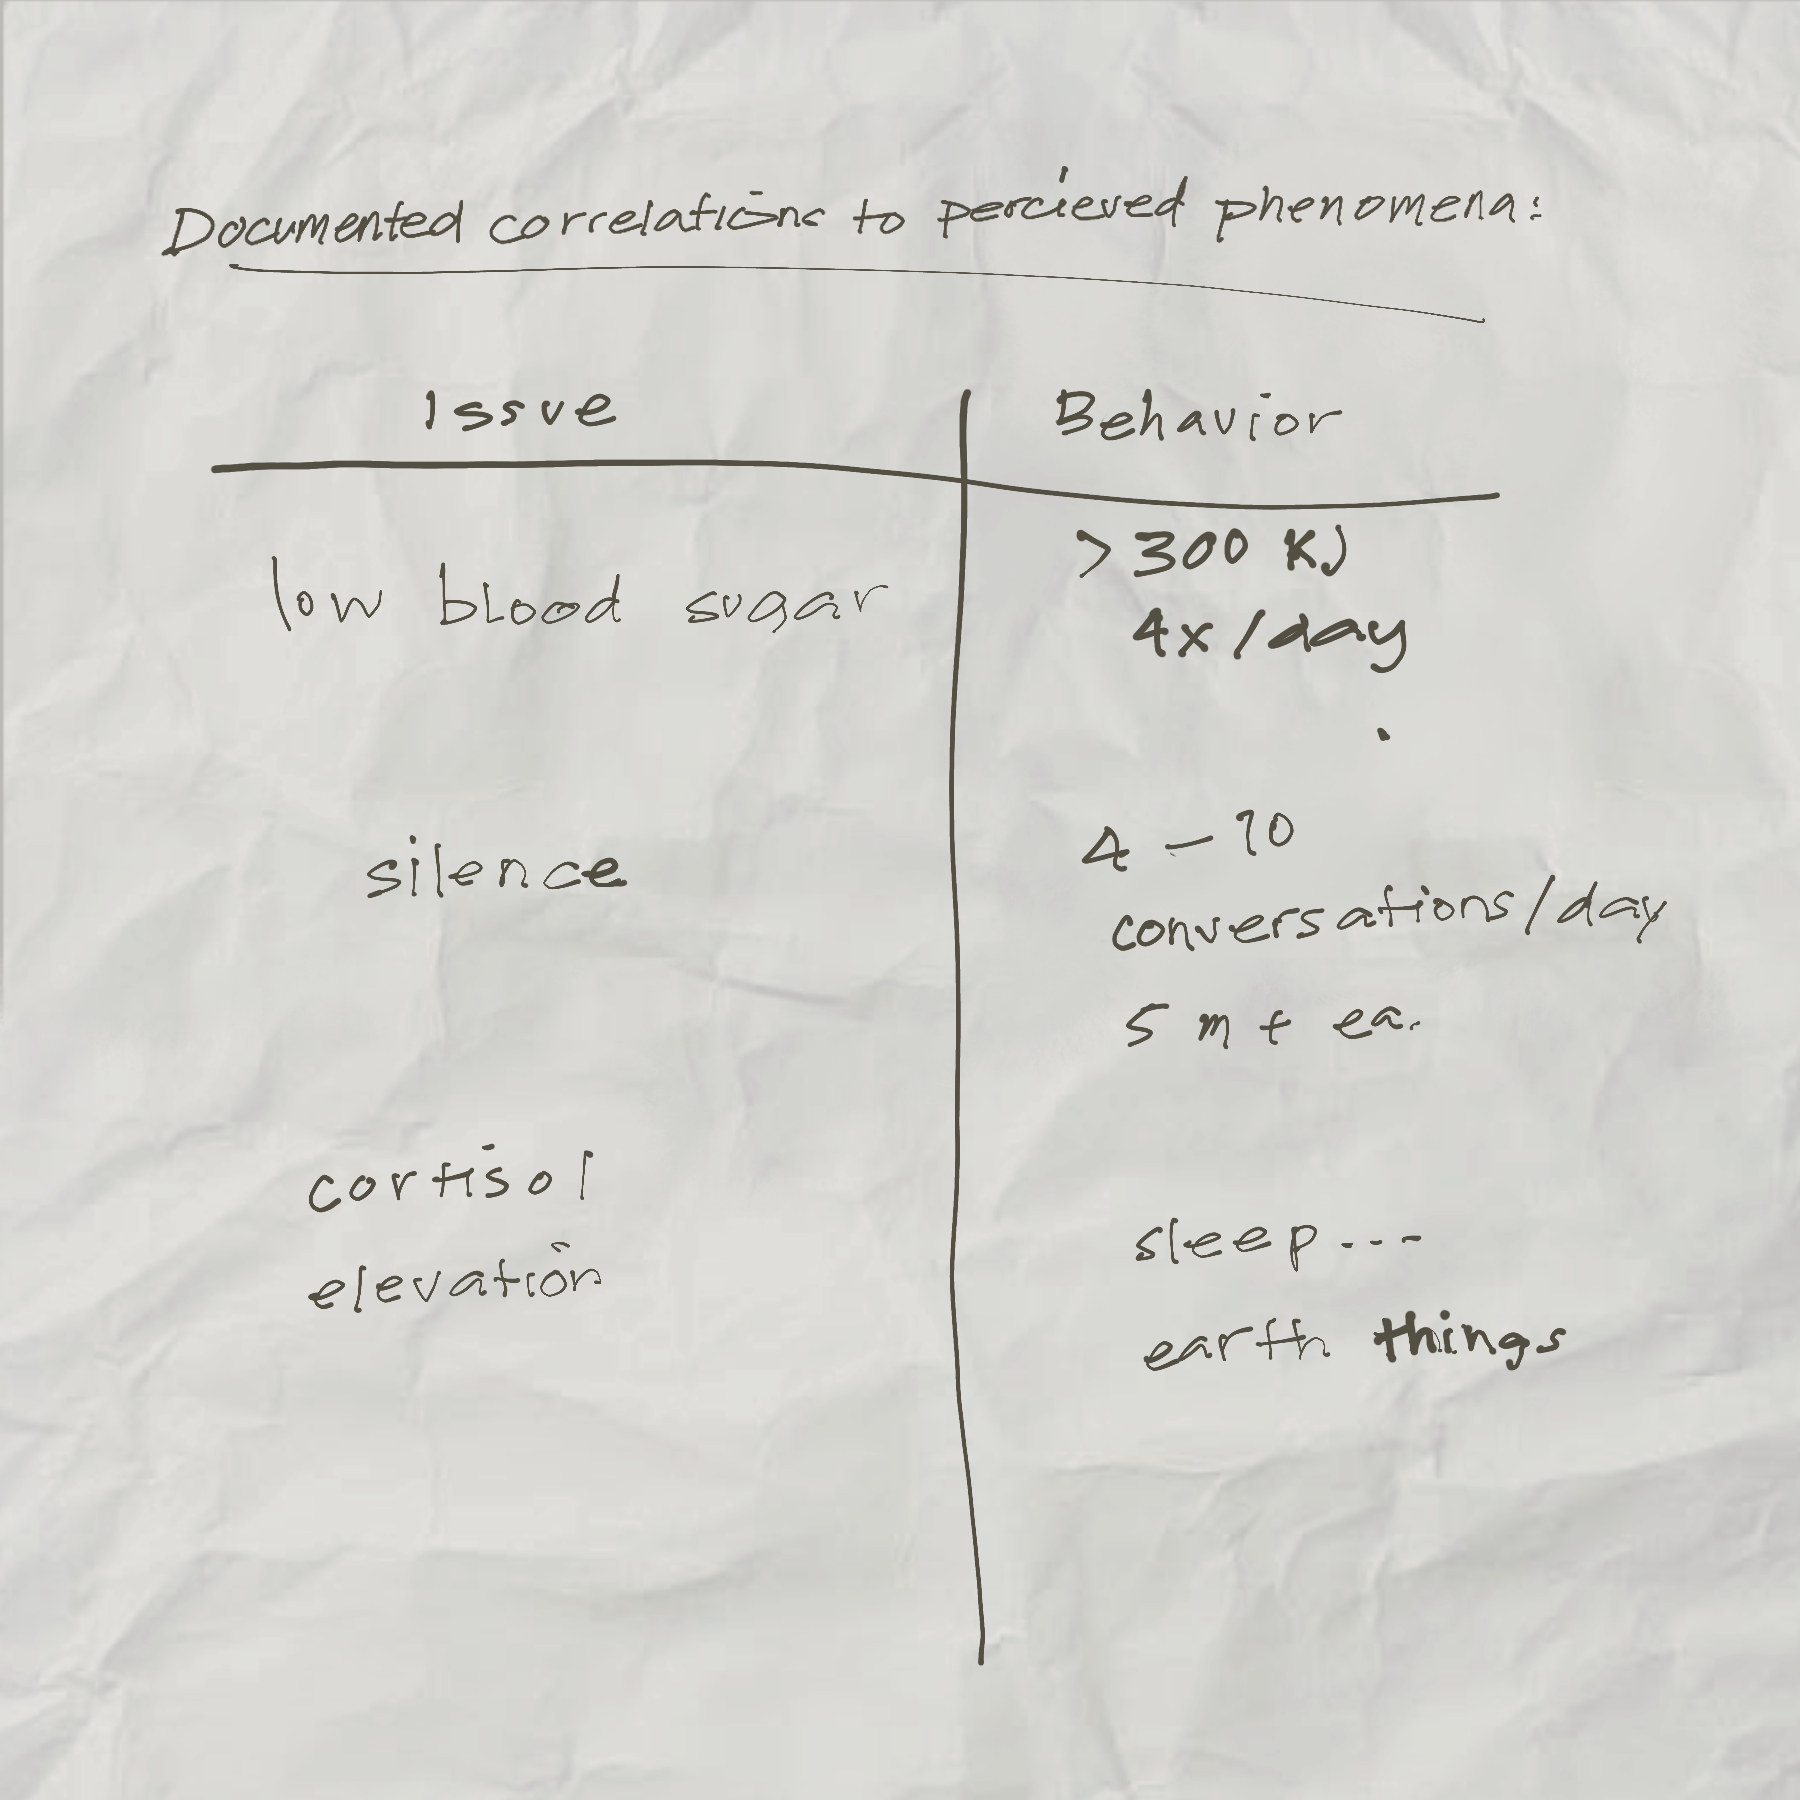 Documented correlations to percieved phenomena:
Issue
Behavior
low blood sugar
>300 KJ
4x/day
silence
4-10
conversations/day
5 m + ea.
cortisol
elevation
sleep...
earth things